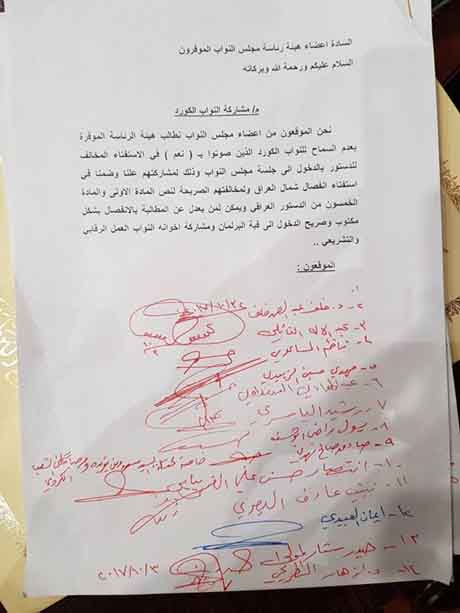 السادة اعضاء هيئة رئاسة مجلس النواب الموقرون
السلام عليكم ورحمة الله وبركاته
م/ مشاركة النواب الكورد
نحن الموقعون من اعضاء مجلس النواب نطالب هيئة الرئاسة الموقرة
بعدم السماح للنواب الكورد الذين صوتوا بـ ( نعم ) في الاستفتاء المخالف
للدستور بالدخول الى جلسة مجلس النواب وذلك لمشاركتهم علنا وضمنا في
استفتاء انفصال شمال العراق ولمخالفتهم الصريحة لنص المادة الاولى والمادة
الخمسون من الدستور العراقي ويمكن لمن يعدل عن المطالبة بالانفصال بشكل
مكتوب وصريح الدخول الى قبة البرلمان ومشاركة اخوانه النواب العمل الرقابي
والتشريعي ..
الموقعون :
١-
٢- د. خلف عبد الصمد خلف
٣- عبد الاله النائلي
٤- ناظم الساعدي
٥- مهدي حسين
٦- عبد الهادي
٧- رشيد الياسري
٨- رسول راضي
٩- صادق
١٠- انتصار حسن علي
١١- زينب عارف البصري
١٢- ايمان
١٣- حيدر ستار المولى
١٤- د. ازهار الطريحي
٢٠١٧/١٠/٣